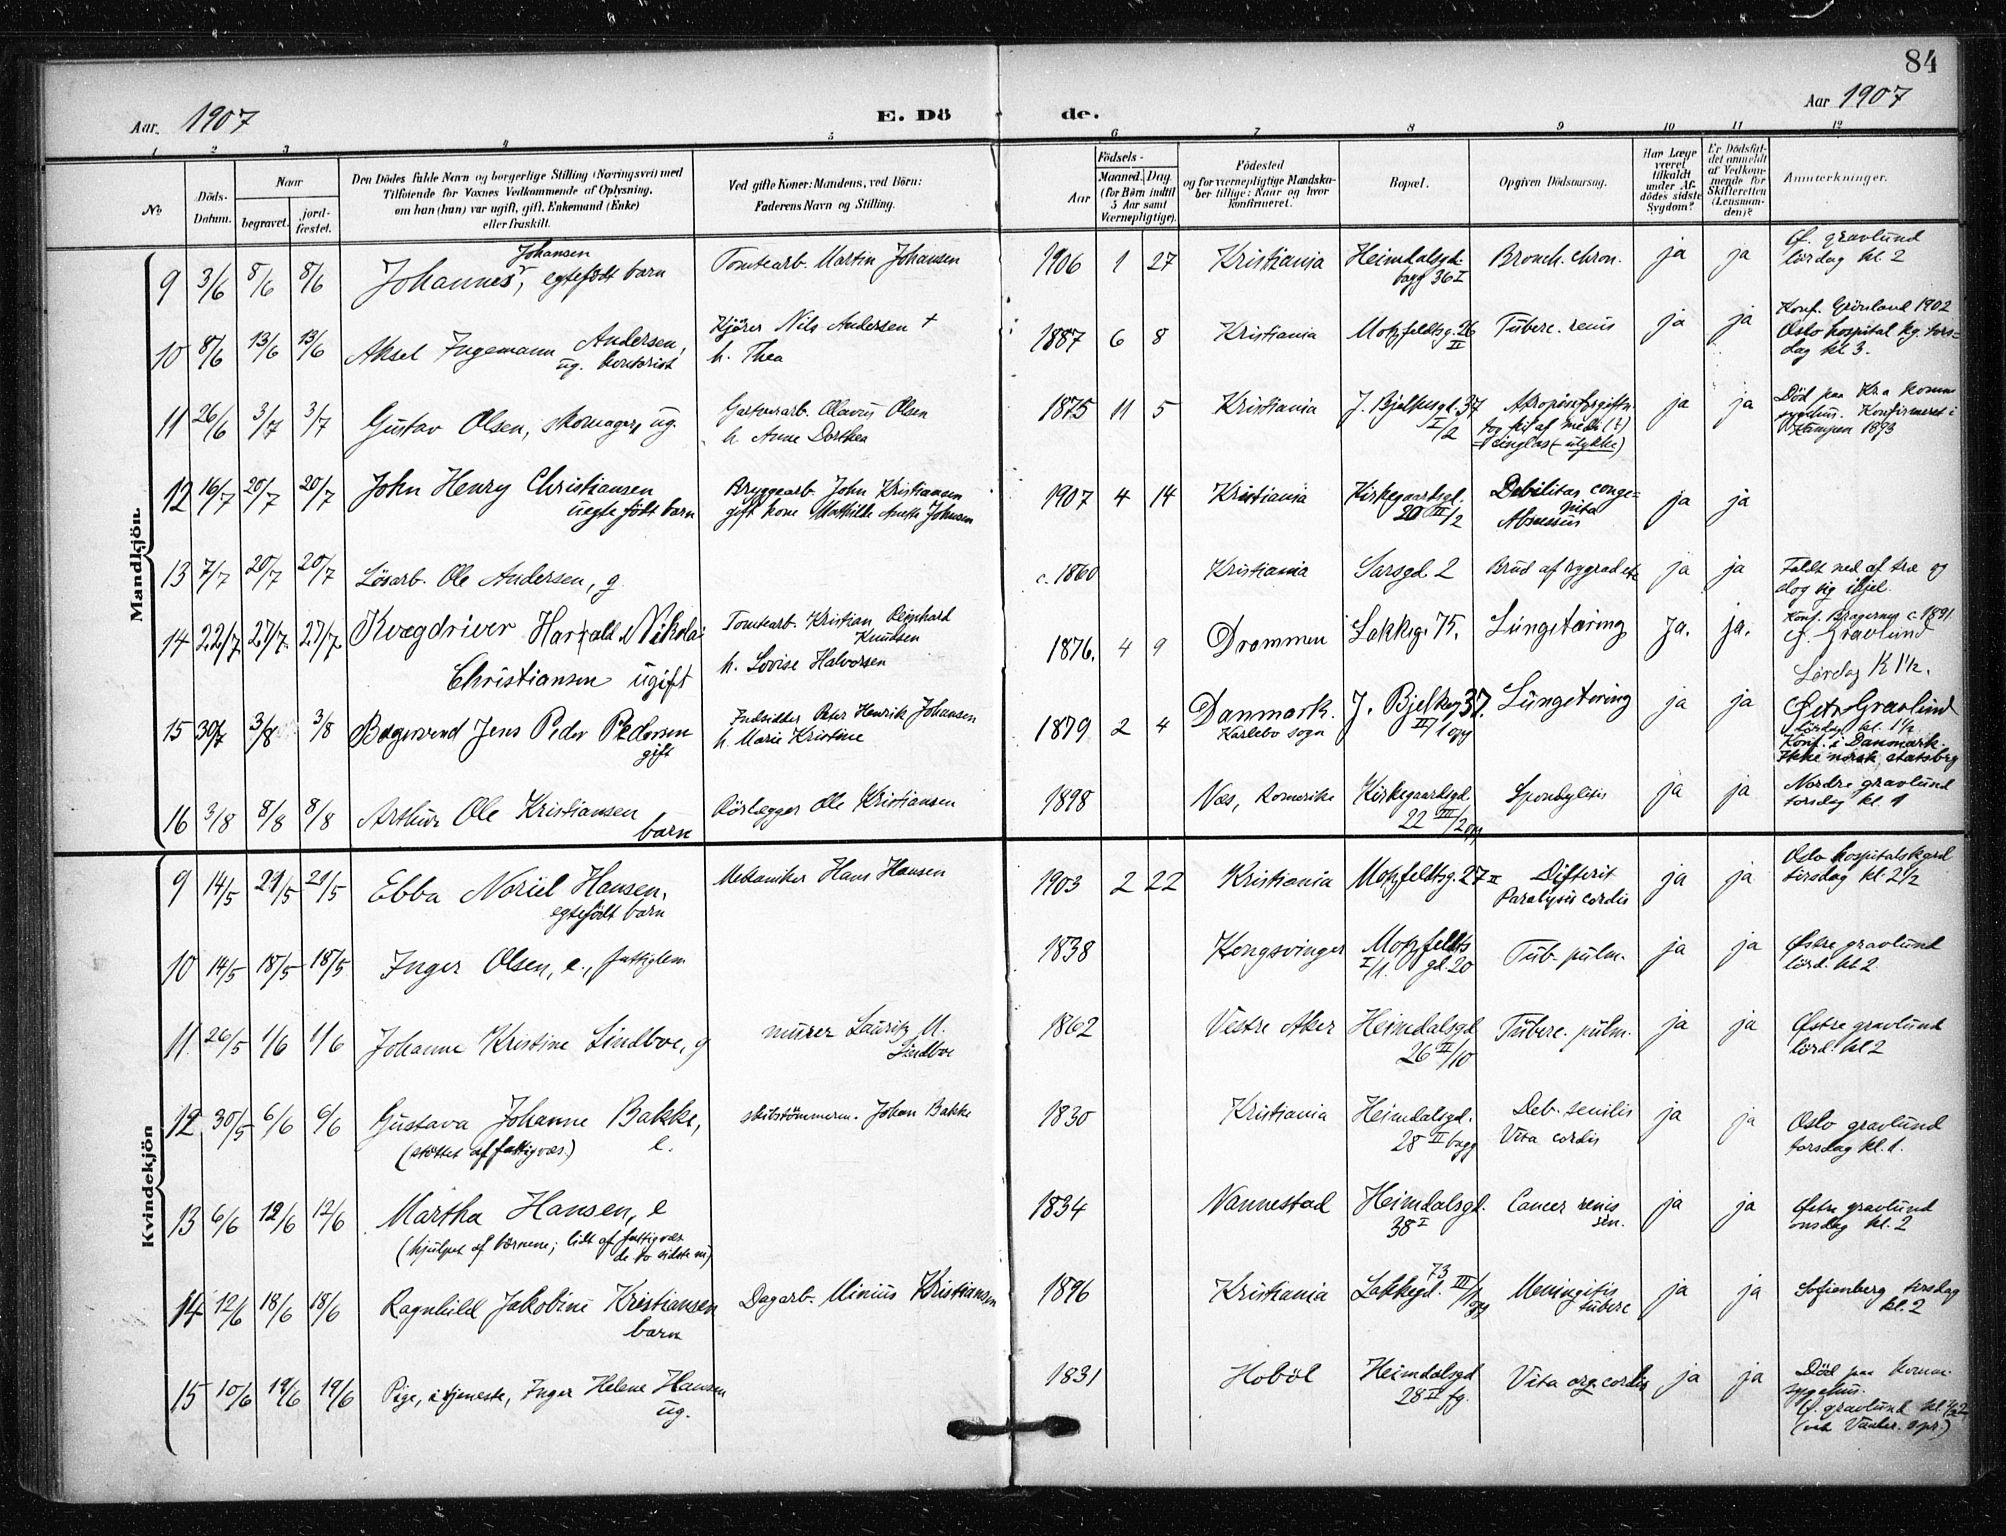 84
Aar. 1907
E. Dö de.
Aar 1907
1 2 3 4 5 6 7 8 9 10 11 12
No.
Döds-Datum.
Naar
begravet.
jord-fæstet.
Den Dödes fulde Navn og borgerlige Stilling (Næringsvei) med
Tilföiende for Voxnes Vedkommende af Oplysning,
om han (hun) var ugift, gift, Enkemand (Enke)
eller fraskilt.
Ved gifte Koner: Mandens, ved Börn:
Faderens Navn og Stilling.
Födsels-
Aar
Maaned. Dag.
(for Börn indtil
5 Aar samt
Værnepligtige).
Födested
og for værnepligtige Mandska-
ber tillige: Naar og hvor
konfirmeret.
Bopæl.
Opgiven Dödsaarsag.
Har Læge
været
tilkaldt
under Af-
dödes sidste
Sygdom?
Er Dödsfal-
det anmeldt
af Vedkom-
mende for
Skifteretten
(Lensman-
den)?
Anmerkninger.
Mandkjön.
9 3/6 8/6 8/6 Johannes Johansen, egtefödt barn
Tomtearb. Martin Johansen
1906 1 27 Kristiania Heimdalsgd. bagg 36 I Bronch. chron. ja ja
Ø. gravlund
lördag kl. 2
10 8/6 13/6 13/6 Aksel Ingemann Andersen,
ug. kontorist
Kjörer Nils Andersen +
h. Thea
1887 6 8 Kristiania Motzfeldtsg. 26 II Tuberc. renis ja ja
Konf. Grönland 1902
Oslo hospital kg. tors-
dag kl 3.
11 26/6 3/7 3/7 Gustav Olsen, skomager, ug.
Gartnerarb. Olavus Olsen
h. Anne Dorthea
1875 11 5 Kristiania J. Bjelkesgd. 37 I/2 Atropinforgiftn.
ja ja
Död paa Kr.a komm
sygehus. Konfirmeret i
Kampen 1893
12 16/7 20/7 20/7 John Henry Christiansen
uegte födt barn
Bryggearb John Kristiansen
gift kone Mathilde Aneth Johnsen
1907 4 14 Kristiania Kirkegaardsgd. 20 III/2 Debilitas conge-
nita
Abscessus
ja ja
13 7/7 20/7 20/7 Lösarb. Ole Andersen, g.
c. 1860 Kristiania Sarsgd 2 Brud af rygrad etc ja ja
Faldt ned af træ og
slog sig ihjel.
14 22/7 27/7. 27/7 Kvægdriver Harald Nikolai
Christiansen ugift
Tomtearb. Kristian Reinhard
Knudsen
h. Lovise Halvorsen
1876. 4 9 Drammen Lakkeg. 75. Lungetæring Ja. ja.
Konf. Bragernes c. 1891
Ø. Gravlund
Lördag K 1½.
15 30/7 3/8 3/8 Bagersvend Jens Peder Pedersen
gift
Indsidder Peter Henrik Johansen
h. Marie Kristine
1879 2 4 Danmark.
Karlebo sogn
J. Bjelkeg 37. II/1 opg Lungetæring ja ja
Østre Gravlund
Lördag kl. 1½
Konf. i Danmark.
Ikke norsk statsborg
16 3/8 8/8 8/8 Arthur Ole Kristiansen
barn
Rörlægger Ole Kristiansen
1898 Næs, Romerike Kirkegaardsgd 22 III/2 opg Spondylitis ja ja
Nordre gravlund
torsdag kl. 1
Kvindekjön
9 14/5 21/5 21/5 Ebba Noriel Hansen,
egtefödt barn
Mekaniker Hans Hansen
1903 2 22 Kristiania Motzfeldtsg. 27 II Difterit
Paralysis cordis
ja ja
Oslo hospitalskgrd
tirsdag kl. 2½
10 14/5 18/5 18/5 Inger Olsen, e., fattiglem
1838 Kongsvinger Motzfeldts
I/1. gd. 20
Tub. pulm. ja ja
Østre gravlund
lörd. kl 2.
11. 26/5 1/6 1/6 Johanne Kristine Lindboe, g
murer Lauritz M.
Lindboe
1862 Vestre Aker Heimdalsgd 26 II/10 Tuberc. pulm. ja ja
Østre gravlund
lörd. kl 2
12 30/5 6/6 6/6 Gustava Johanne Bakke,
(støttet af fattigvæs.) e.
skibstömmerm. Johan Bakke
1830 Kristiania Heimdalsgd. 28 II bagg Deb. senilis
Vita cordis
ja ja
Oslo gravlund
torsdag kl. 1.
13 6/6 12/6 12/6 Martha Hansen, e
(hjulpet af börnene; lidt af fattigvæs
de to sidste m)
1834 Nannestad Heimdalsgd. 38 I Cancer renis
sen.
ja ja
Østre gravlund
onsdag kl. 2
14 12/6 18/6 18/6 Ragnhild Jakobine Kristiansen
barn
Dagarb. Minius Kristiansen
1896 Kristiania Lakkegd. 73 III/1 opg Meningitis
tuberc
ja ja
Sofienberg tirsdag
kl. 2
15 10/6 19/6 19/6 Pige, i tjeneste, Inger Helene Hansen
ug.
1831 Hoböl Heimdalsgd 28 II fg. Vita org. cordis ja ja
Död paa komm.
sygehus.
Ø. gravlund kl. ½2